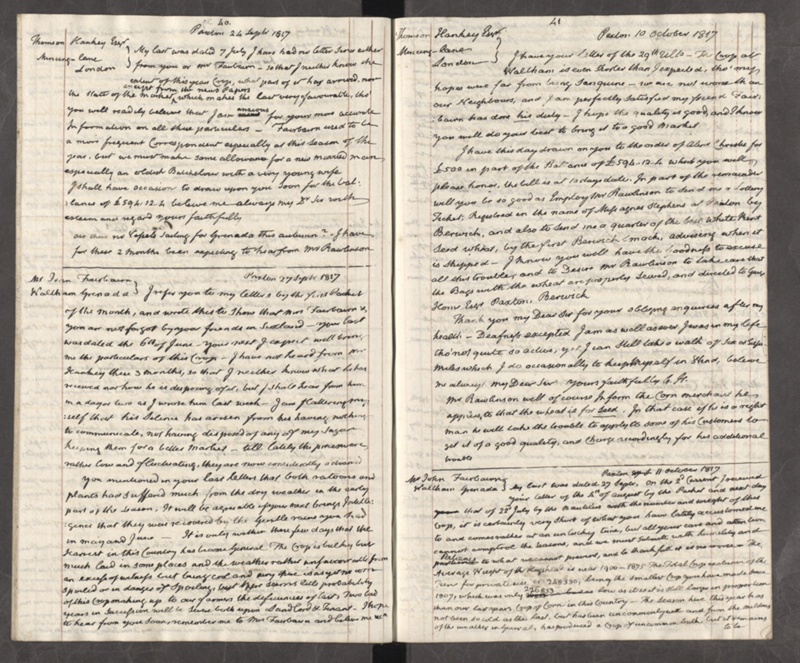 40
Paxton 24 Septr 1817
Thomson Hankey Esqr
Mincing lane
London
My last was dated 7 July, I have had no letter since either
from you or Mr Fairbairn - so that I neither know the
extent of this years Crop, what part of it has arrived, nor
the State of the Market, except from the News Papers which makes the last very favourable, tho'
you will readily believe that I am anxious for your more accurate
Information on all these particulars - Fairbairn used to be
a more frequent Correspondent especially at this Season of the
year, but we must make some allowance for a new married man
especially an oldish Batchelor with a very young wife
I shall have occasion to draw upon you soon for the bal-
lance of £594.12.4 believe me always my Dr Sir with
esteem and regard yours faithfully
are any Vessels Sailing for Grenada this autumn? - I have
for these 2 months been expecting to hear from Mr Rawlinson
Paxton 27 Septr 1817
Mr John Fairbairn
Waltham Grenada
I refer you to my letter by the first Packet
of the month, and wrote this to Show that Mrs Fairbairn &
you are not forgot by your friends in Scotland - your last
was dated the 6th of June - your next I expect will bring
me the particulars of this Crop - I have not heard from Mr
Hankey these 3 months, so that I neither know what he has
received nor how he is disposing of it, but I shall hear from him
in a day or two as I wrote him last week - I am flattering my-
self that his Silence has arisen from his having nothing
to communicate, not having disposed of any of my Sugar
keeping them for a better Market - till lately the prices were
rather low and fluctuating, they are now considerably advanced
You mentioned in your last letter that both ratoons and
plants had suffered much from the dry weather in the early
part of the Season, It will be agreeable if your next brings Intelli-
gence that they were recovered by the Gentle rains you had
in May and June - It is only within these few days that the
Harvest in this Country has become General The Crop is bulky but
much laid in some places and the weather rather unfavourable from
an excess of wetness but being cold and airy there is as yet no corn
Spoiled or in danger of Spoiling, but there seems little probability
of this Crop making up to our farmers the deficiencies of last Two bad
years in Succession will be Severe both upon Landlord & Tenant - I hope
to hear from you Soon, remember me to Mrs Fairbairn and believe me &c
41
Paxton 10 October 1817
Thomson Hankey Esqr
Mincing-lane
London
I have your letter of the 29th Ulto - The Crop at
Waltham is even shorter than I expected, tho' my
hopes were far from being Sanguine - we are not worse than
our Neighbours, and I am perfectly Satisfied my friend Fair-
bairn has done his duty - I hope the quality is good, and I know
you will do your best to bring it to a good Market
I have this day drawn on you to the order of Alexr Christie for
£500 in part of the Ballance of £594.12.4 which you will
please honor, the bill is at 10 days date. In part of the remainder
will you be so good as Employ Mr Rawlinson to Send me a Lottery
Ticket, Registered in the name of Miss Agnes Stephens at Paxton by
Berwick, and also to Send me a quarter of the best white Kent
Seed wheat, by the first Berwick Smack, advising when it
is Shipped - I know you will have the Goodness to excuse
all this trouble, and to Desire Mr Rawlinson to take care that
the Bags with the wheat are properly Sewed, and directed to George
Home Esqr Paxton, Berwick
Thank you my Dear Sir for your obliging enquiries after my
health - Deafness excepted I am as well as ever I was in my life
tho' not quite so active, yet I can Still take a walk of Six or Eight
Miles which I do occasionally to keep myself in Wind, believe
me always my Dear Sir yours faithfully G. H.
Mr Rawlinson will of course Inform the Corn merchant he
applies to that the wheat is for Seed. In that case if he is a right
man he will take the trouble to apply to some of his Customers to
get it of a good quality, and Charge accordingly for his additional
trouble
Paxton 11 October 1817
Mr John Fairbairn
Waltham Grenada
My last was dated 27 Septr. On the 2d Current I received
your letter of the 4th of August by the Packet and next day
that of 22d July by the Nautilus with the number and weight of this
Crop, it is certainly very Short of what you have lately accustomed me
to and comes rather at an unlucky time, but all your care and attention
cannot comptroul the Seasons, and we must submit with humility and
Patience to what we cannot prevent, and be thankful it is no worse - The
Average Weight of the Hogshead is near 1900 - 1875 The Total Crop
being the Smallest Crop you have made Since
1807, which was only
than our last years Crop of Corn in this Country - The Season here this year has
not been so cold as the last, but has been uncommonly wet and from the mildness
of the weather in General, has produced a Crop of uncommon bulk, but it remains
to be